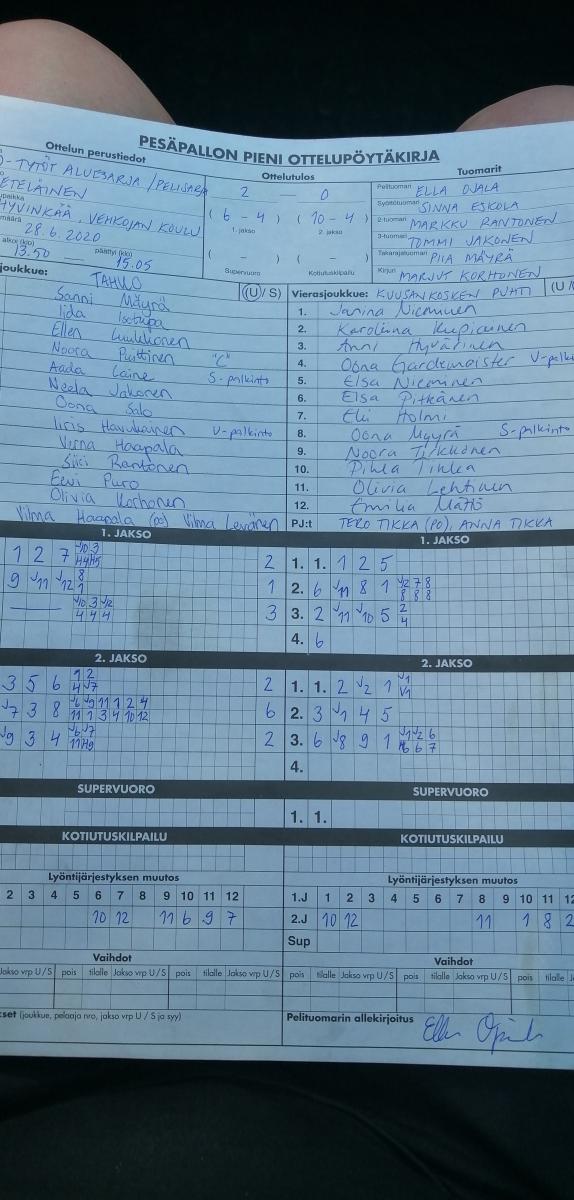 PESÄPALLON PIENI OTTELUPÖYTÄKIRJA
Ottelun perustiedot
-TYTÖT ALUESARJA /PELISARJA
ETELÄINEN
HYVINKÄÄ, VEHKOJAN KOULU
28.6.2020
alkoi (klo) 13.50 päättyi (klo) 15.05
Ottelutulos
2 — 0
( 6 - 4 ) ( 10 - 4 )
1. jakso 2. jakso
( - ) ( - )
Supervuoro Kotiutuskilpailu
Tuomarit
Pelituomari ELLA OJALA
Syöttötuomari SINNA ESKOLA
2-tuomari MARKKU RANTONEN
3-tuomari TOMMI JAKONEN
Takarajatuomari PIIA MÄYRÄ
Kirjuri MARJUT KORHONEN
joukkue: TAHKO (U/ S)
Sanni Mäyrä
Iida Isotupa
Ellen Luukkonen
Noora Puittinen "C"
Aada Laine S-palkinto
Neela Jakonen
Oona Salo
Iiris Havukainen V-palkinto
Verna Haapala
Siiri Rantonen
Eevi Puro
Olivia Korhonen
Vilma Haapala (PO) Vilma Levänen
Vierasjoukkue: KUUSANKOSKEN PUHTI (U /
1. Janina Nieminen
2. Karoliina Kupiainen
3. Anni Hyvärinen
4. Oona Gardemeister V-palki
5. Elsa Nieminen
6. Elsa Pitkänen
7. Elli Holmi
8. Oona Mäyrä S-palkinto
9. Noora Tirkkonen
10. Pihla Tikka
11. Olivia Lehtinen
12. Emilia Mättö
PJ:t TERO TIKKA (PO), ANNA TIKKA
1. JAKSO
1 2 7 2
9 V11 V12 8 1 1
— 3
2. JAKSO
3 5 6 1 2 4 V7 2
V7 3 8 V6 V9 11 1 2 4 6
11 1 3 4 10 12
V9 3 4 2
SUPERVUORO
KOTIUTUSKILPAILU
Lyöntijärjestyksen muutos
2 3 4 5 6 7 8 9 10 11 12
10 12 11 6 9 7
Vaihdot
Jakso vrp U / S pois tilalle Jakso vrp U / S pois tilalle Jakso vrp U / S
set (joukkue, pelaaja nro, jakso vrp U / S ja syy)
1. JAKSO
1. 1. 1 2 5
2. 6 V11 8 1 V2 7 8
8 8 8
3. 2 V11 V10 5 2
4
4. 6
2. JAKSO
1. 1. 2 V2 1 V1
V1
2. 3 V1 4 5
3. 6 V8 9 1 V1 V2 6
6 7
4.
SUPERVUORO
1. 1.
KOTIUTUSKILPAILU
Lyöntijärjestyksen muutos
1.J 1 2 3 4 5 6 7 8 9 10 11 12
2.J 10 12 11 1 8 2
Sup
Vaihdot
pois tilalle Jakso vrp U / S pois tilalle Jakso vrp U / S pois tilalle
Pelituomarin allekirjoitus